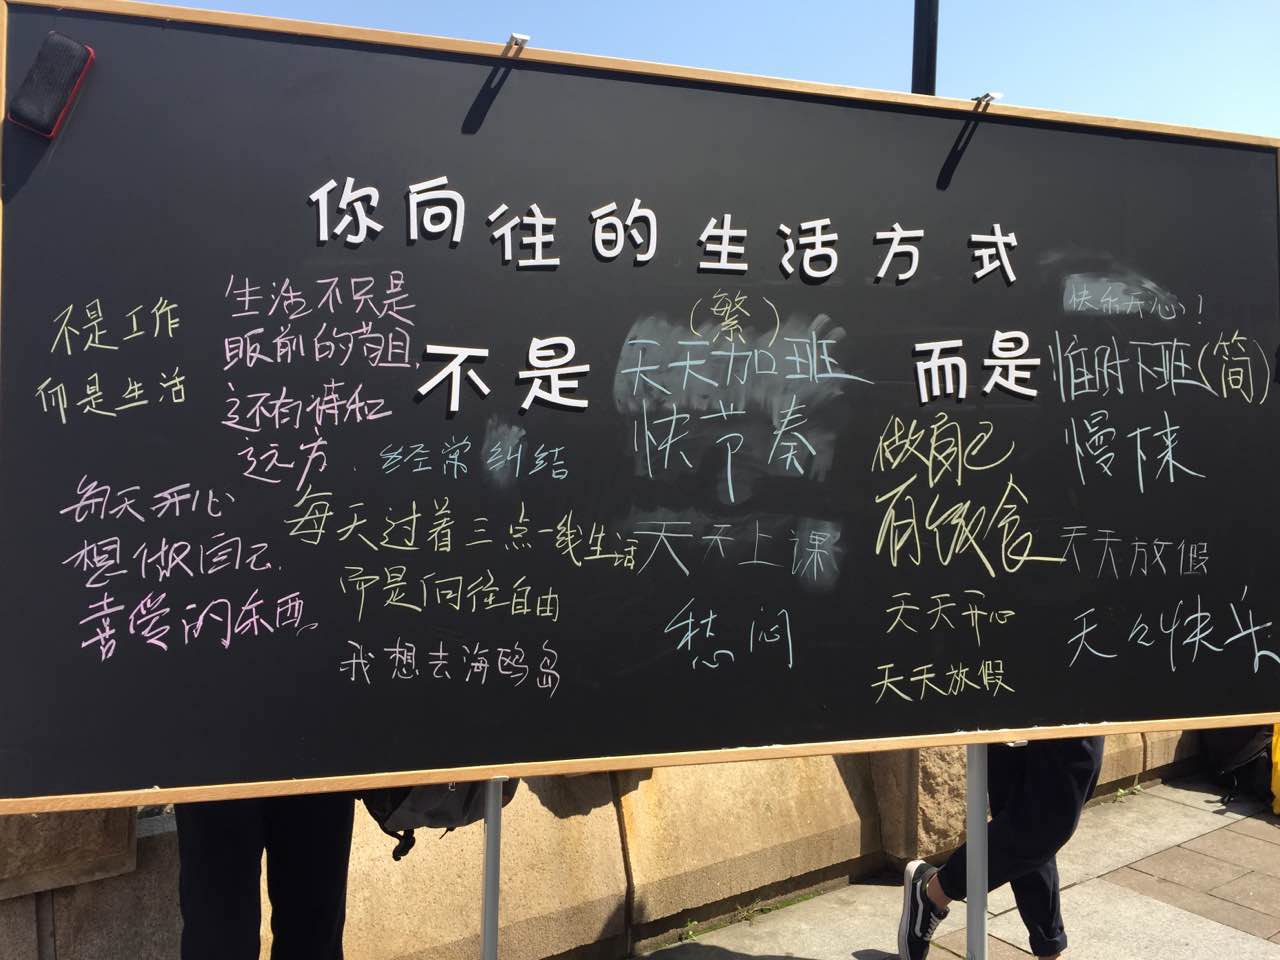 你向往的生活方式
不是
而是
不是工作
仰是生活
生活不只是
眼前的苟且,
还有诗和
远方.
每天开心
想做自己.
喜爱的东西.
经常纠结
每天过着三点一线生活
而是向往自由
我想去海鸥岛
(繁)
天天加班
快节奏
天天上课
愁闷
做自己
有饭食
天天开心
天天放假
快乐开心!
准时下班(简)
慢下来
天天放假
天々快乐